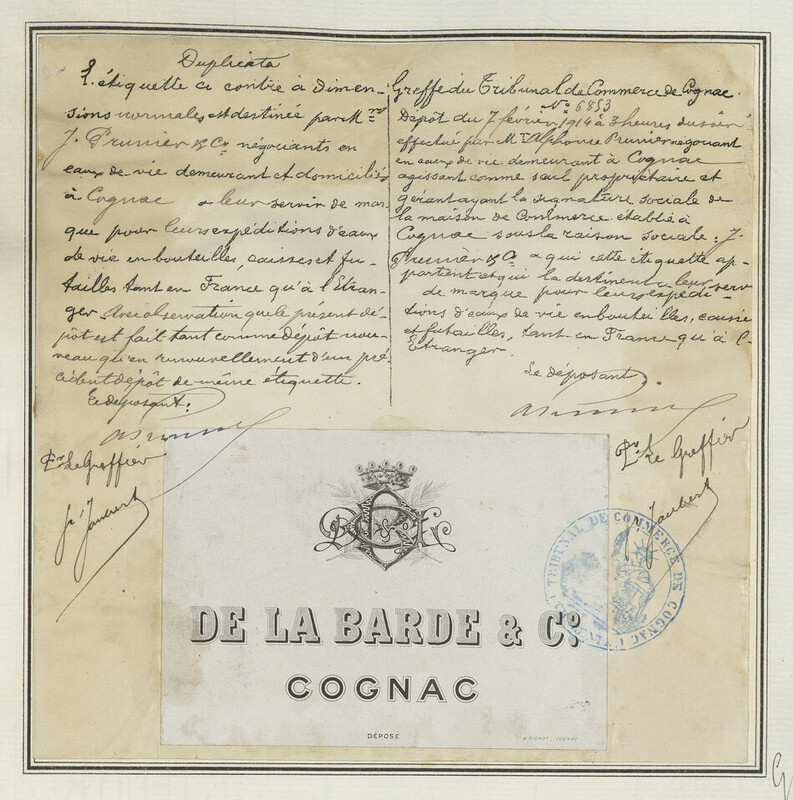 Duplicata
L'étiquette ci contre à dimen-
sions normales est destinée par Mrs
J. Prunier & Co négociants en
eaux de vie demeurant et domiciliés
à Cognac a leur servir de mar
que pour leurs expéditions d'eaux
de vie en bouteilles, caisses et fu-
tailles tant en France qu'à l'Etran-
ger Avec observation que le présent dé-
pôt est fait tant comme dépôt nou-
veau qu'en renouvellement d'un pré
cédent dépôt de même étiquette.
Le déposant:
Pr Le Greffier
Jaubert
Greffe du Tribunal de Commerce de Cognac.
No 6853
Dépôt du 7 février 1914 à 3 heures du soir
effectué par Mr Alphonse Prunier négociant
en eaux de vie demeurant à Cognac
agissant comme seul propriétaire et
gérant ayant la signature sociale de
la maison de Commerce établie à
Cognac sous la raison sociale: J.
Prunier & Co a qui cette étiquette ap-
partient et qui la destinent a leur serv
de marque pour leurs expédi-
tions d'eaux de vie en bouteilles, caisse
et futailles, tant en France qu'à l'
Etranger.
Le déposant
Pr Le Greffier
Jaubert
TRIBUNAL DE COMMERCE DE COGNAC
DE LA BARDE & Co.
COGNAC
DÉPOSÉ
COGNAC